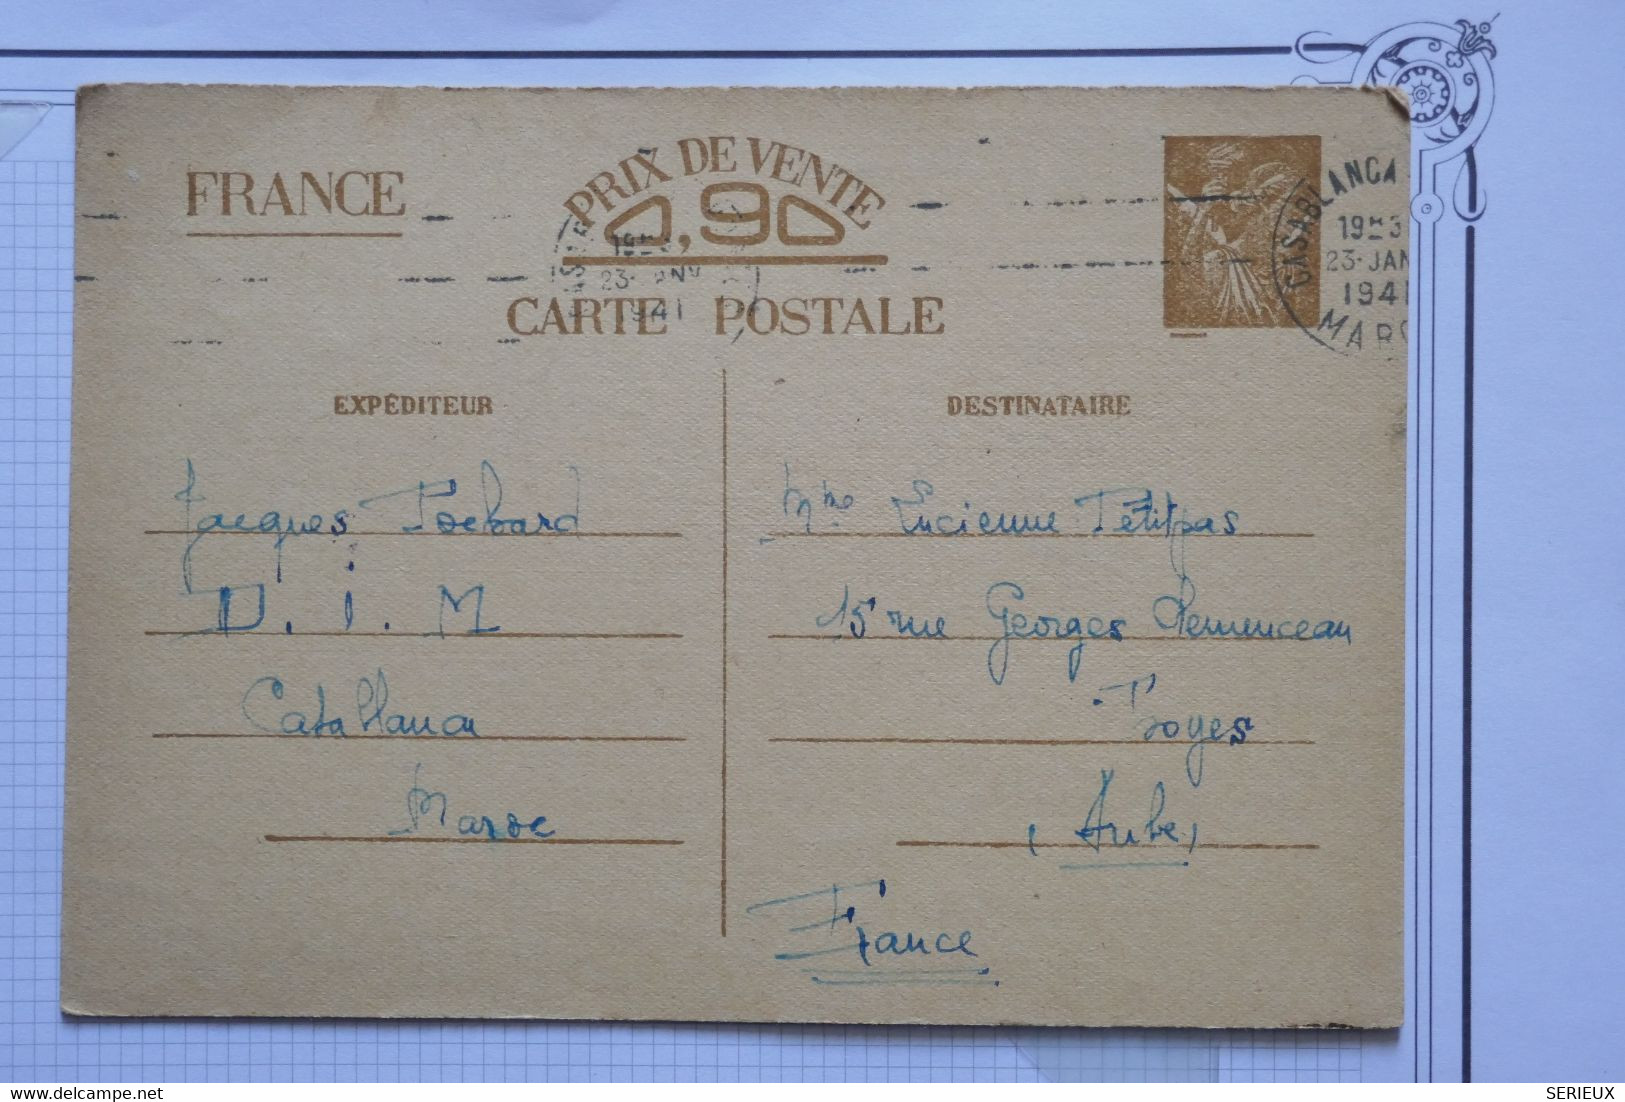 FRANCE
PRIX DE VENTE
0,90
CARTE POSTALE
1941
CASABLANCA
23·JAN
1941
MARO
EXPÉDITEUR
Jacques
D. i. M
Casablanca
Maroc
DESTINATAIRE
Mme Lucienne Petitpas
15 rue Georges Clemenceau
Troyes
(Aube)
France
www.delcampe.net
SERIEUX